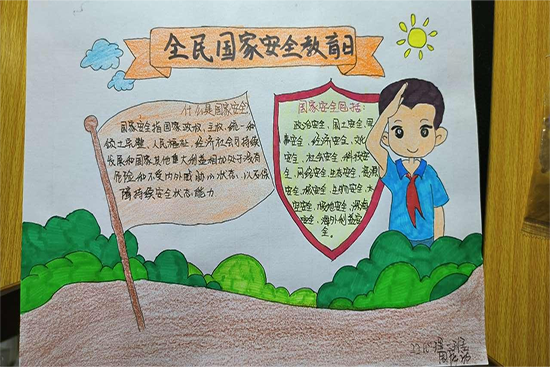 全民国家安全教育日
什么是国家安全
国家安全指国家政权、主权、统一和
领土完整、人民福祉、经济社会可持续
发展和国家其他重大利益相对处于没有
危险和不受内外威胁的状态，以及保
障持续安全状态能力
国家安全包括：
政治安全，国土安全，军
事安全，经济安全，文化
安全，社会安全，科技安
全，网络安全，生态安全，资源
安全，核安全，生物安全，太
空安全，极地安全，深海
安全，海外利益安
全。